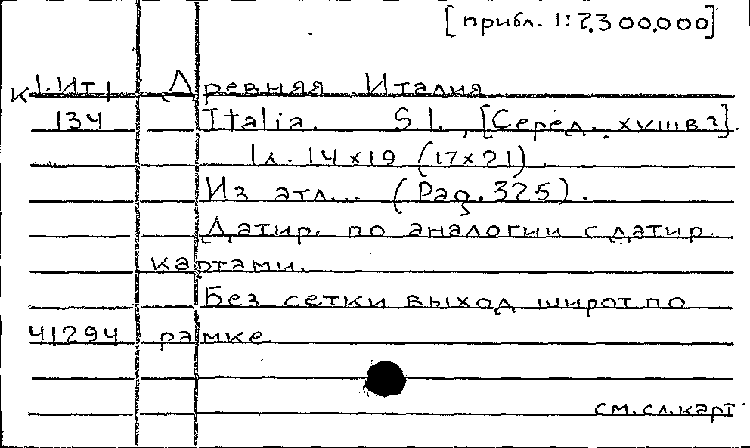 [прибл. 1:7.300.000]
К 1.Ит1 Древняя Италия
134 Italia. S l., [Серед. XVIII в?].
1 л. 14 x 19 (17 x 21).
Из атл... (Pag. 325).
Датир. по аналогии с датир.
картами.
Без сетки выход широт по
41294 рамке
см. сл. карт